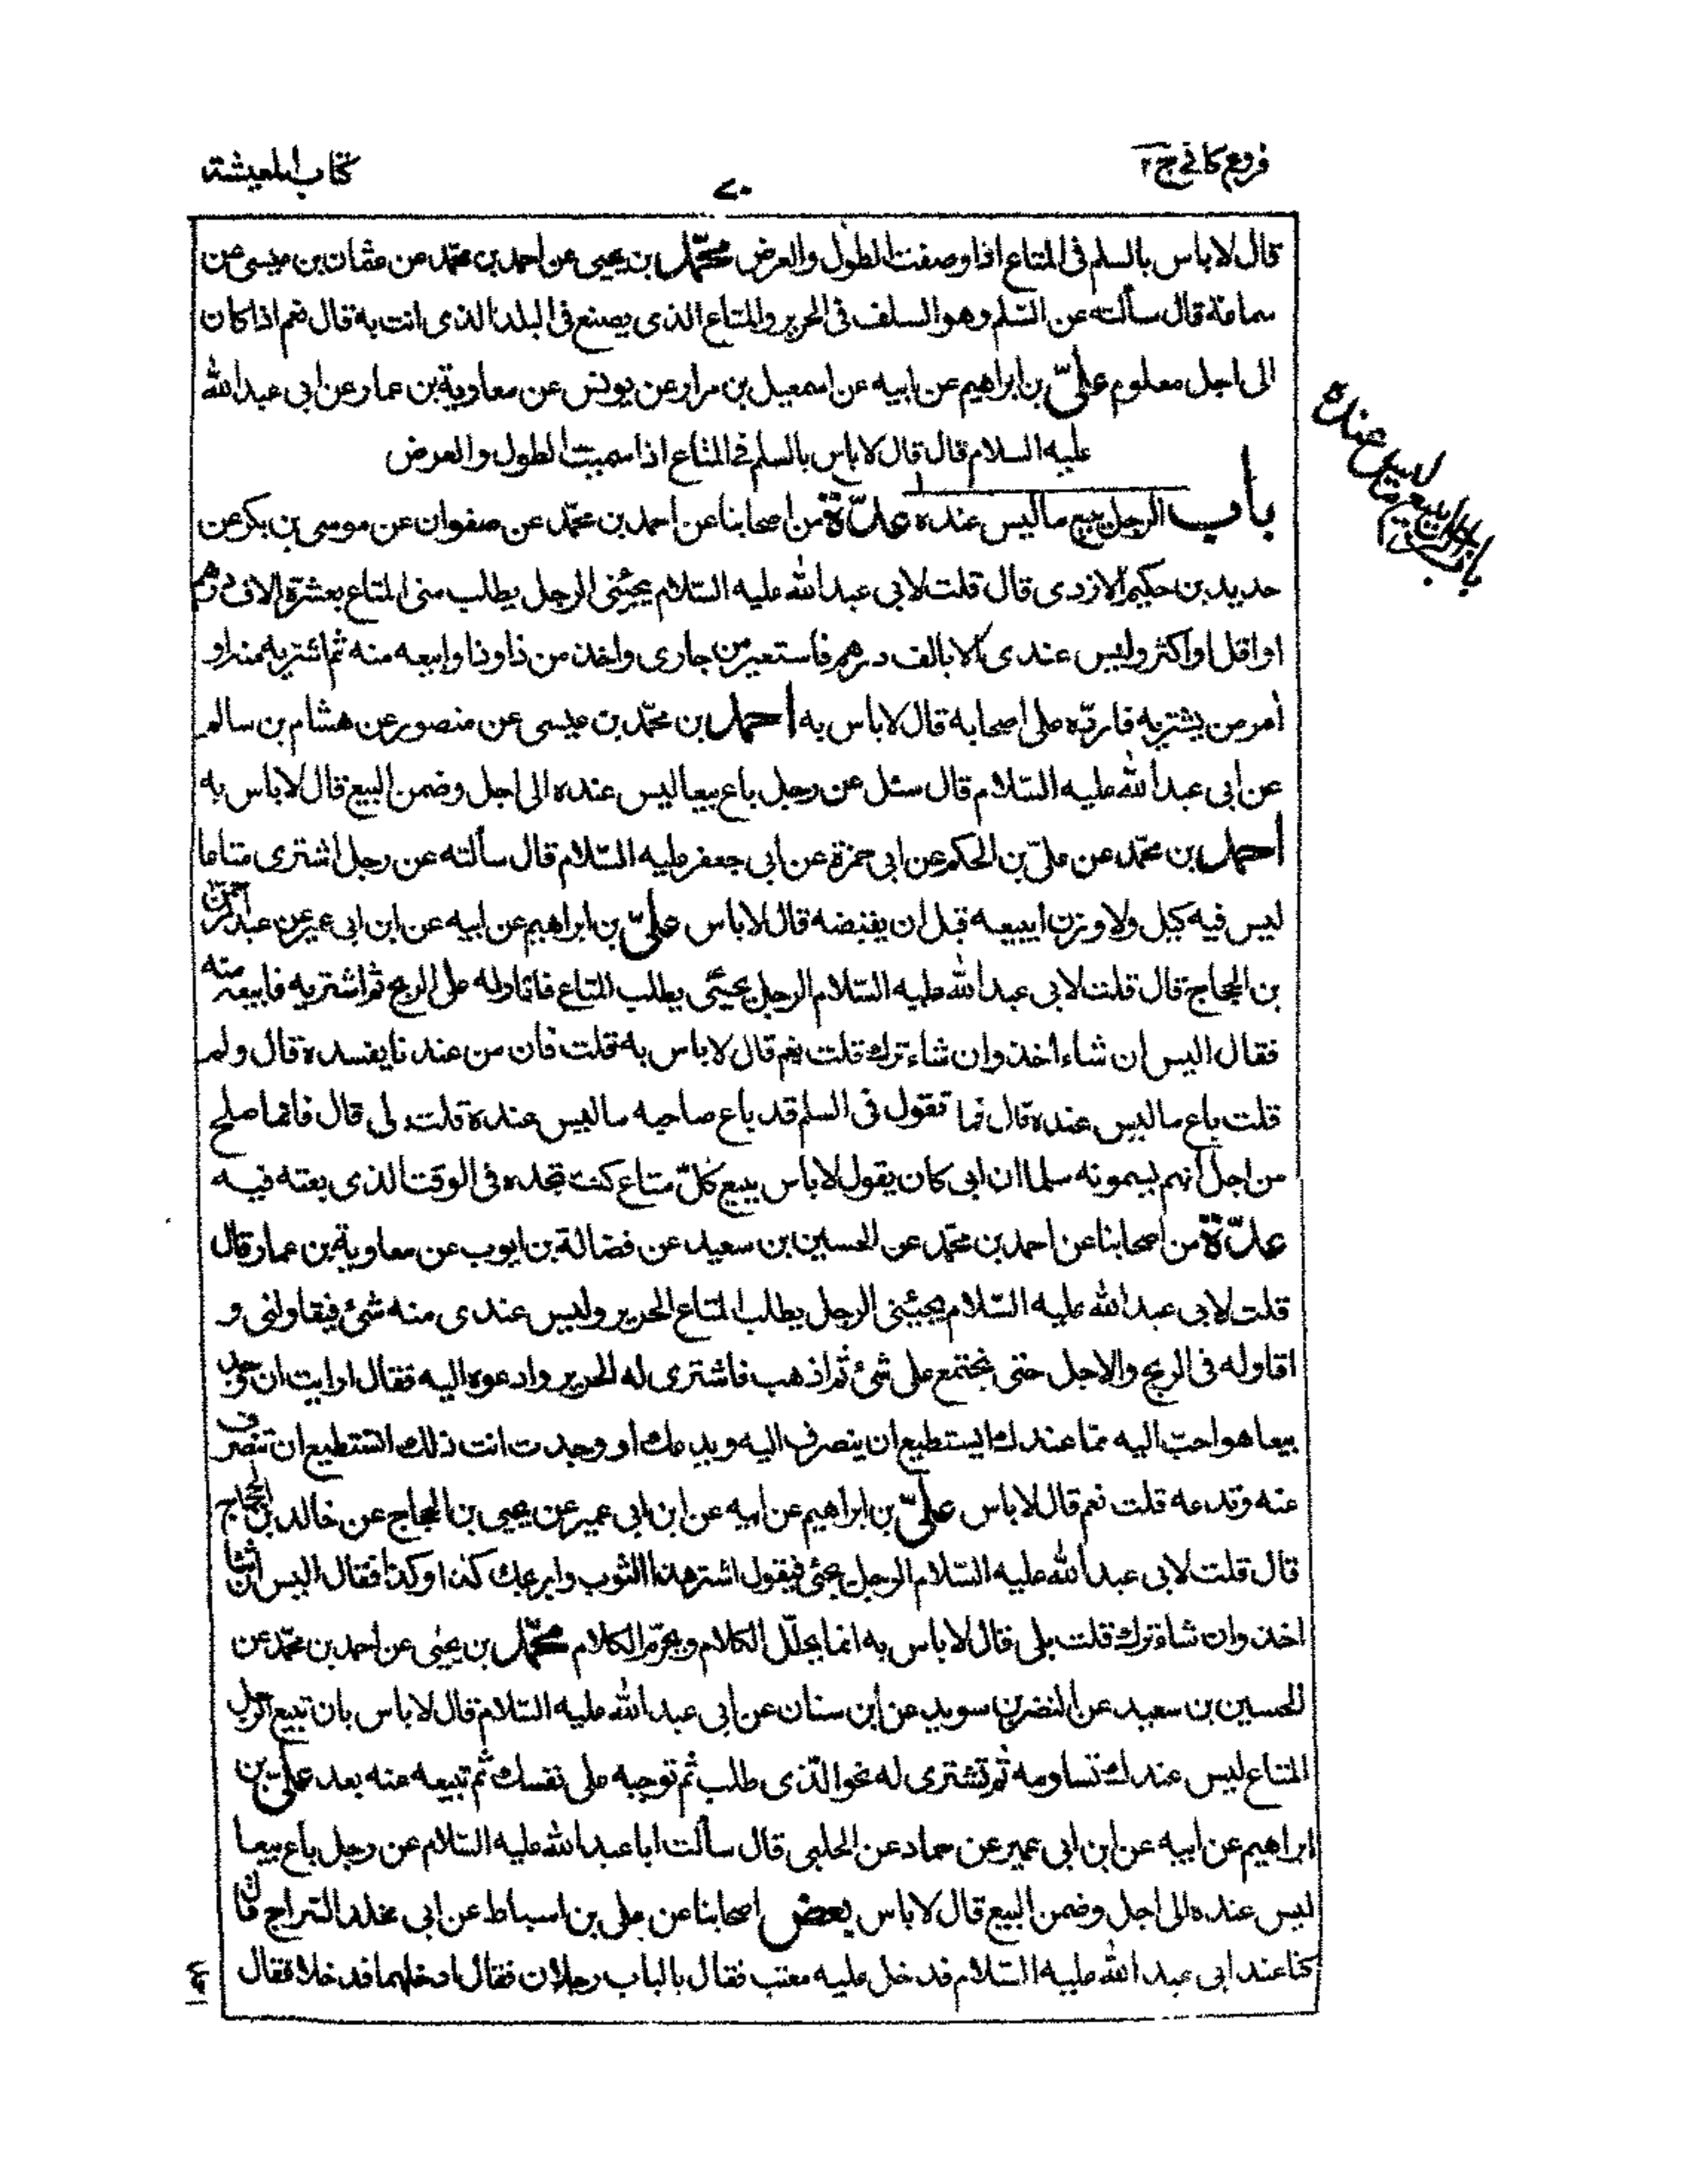 فروع كافي ج ٢
٧٠
كتاب المعيشة
قال لا باس بالسلم فى المتاع اذا وصفت الطول والعرض محمّد بن يحيى عن احمد بن محمّد عن عثمان بن عيسى عن
سماعة قال سألته عن السّلم وهو السلف فى الحرير والمتاع الذى يصنع فى البلد الذى انت به قال نعم اذا كان
الى اجل معلوم علىّ بن ابراهيم عن ابيه عن اسمعيل بن مرار عن يونس عن معاوية بن عمار عن ابى عبد الله
عليه السلام قال قال لا باس بالسلم فى المتاع اذا سميت الطول والعرض
باب الرجل يبيع ما ليس عنده عدّة من اصحابنا عن احمد بن محمّد عن صفوان عن موسى بن بكر عن
حديد بن حكيم الازدى قال قلت لابى عبد الله عليه السّلام يجيئنى الرجل يطلب منى المتاع بعشرة الاف درهم
او اقل او اكثر وليس عندى الا بالف درهم فاستعير من جارى واخذ من ذا وذا وابيعه منه ثم اشتريه منه او
أمر من يشتريه فاردّه على اصحابه قال لا باس به احمد بن محمّد بن عيسى عن منصور عن هشام بن سالم
عن ابى عبد الله عليه السّلام قال سئل عن رجل باع بيعا ليس عنده الى اجل وضمن البيع قال لا باس به
احمد بن محمّد عن علىّ بن الحكم عن ابى حمزة عن ابى جعفر عليه السّلام قال سألته عن رجل اشترى متاعا
ليس فيه كيل ولا وزن ايبيعه قبل ان يقبضه قال لا باس علىّ بن ابراهيم عن ابيه عن ابن ابى عمير عن عبد الرحمن
بن الحجاج قال قلت لابى عبد الله عليه السّلام الرجل يجيئى يطلب المتاع فاقاوله على الربح ثم اشتريه فابيعه منه
فقال اليس ان شاء اخذ وان شاء ترك قلت نعم قال لا باس به قلت فان من عندنا يفسده قال ولم
قلت باع ما ليس عنده قال فما تقول فى السلم قد باع صاحبه ما ليس عنده قلت بلى قال فانما صلح
من اجل انهم يسمونه سلما ان ابى كان يقول لا باس ببيع كلّ متاع كنت تجده فى الوقت الذى بعته فيه
عدّة من اصحابنا عن احمد بن محمّد عن الحسين بن سعيد عن فضالة بن ايوب عن معاوية بن عمار قال
قلت لابى عبد الله عليه السّلام يجيئنى الرجل يطلب المتاع الحرير وليس عندى منه شئ فيقاولنى و
اقاوله فى الربح والاجل حتى نجتمع على شئ ثم اذهب فاشترى له الحرير وادعوه اليه فقال ارايت ان وجد
بيعا هو احبّ اليه ممّا عندك ايستطيع ان ينصرف اليه ويدعك او وجدت انت ذلك اتستطيع ان تنصرف
عنه وتدعه قلت نعم قال لا باس علىّ بن ابراهيم عن ابيه عن ابن ابى عمير عن يحيى بن الحجاج عن خالد بن الحجاج
قال قلت لابى عبد الله عليه السّلام الرجل يجئ فيقول اشتر هذا الثوب واربحك كذا وكذا فقال اليس ان شاء
اخذ وان شاء ترك قلت بلى قال لا باس به انما يحلّل الكلام ويحرّم الكلام محمّد بن يحيى عن احمد بن محمّد عن
الحسين بن سعيد عن النضر بن سويد عن ابن سنان عن ابى عبد الله عليه السّلام قال لا باس بان تبيع الرجل
المتاع ليس عندك تساومه ثم تشترى له نحو الّذى طلب ثم توجبه على نفسك ثم تبيعه منه بعد علىّ بن
ابراهيم عن ابيه عن ابن ابى عمير عن حماد عن الحلبى قال سألت ابا عبد الله عليه السّلام عن رجل باع بيعا
ليس عنده الى اجل وضمن البيع قال لا باس بعض اصحابنا عن على بن اسباط عن ابى مخلد السّراج قال
كنا عند ابى عبد الله عليه السّلام فدخل عليه معتب فقال بالباب رجلان فقال ادخلهما فدخلا فقال